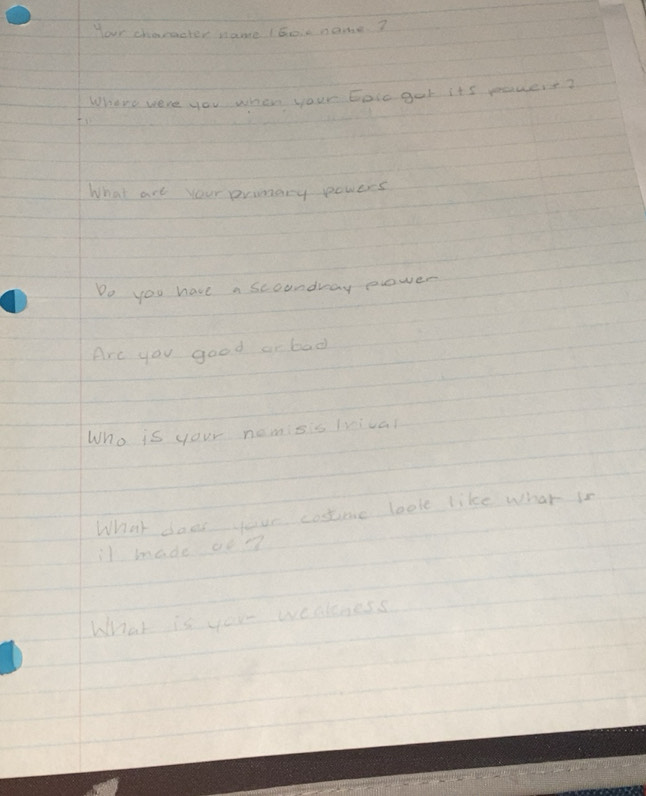 Your character name / Epic name ?
Where were you when your Epic got its powers?
What are your primary powers
Do you have a scoundray power
Are you good or bad
Who is your nemisis / rival
What does your costume look like what is
it made of ?
What is your weakness